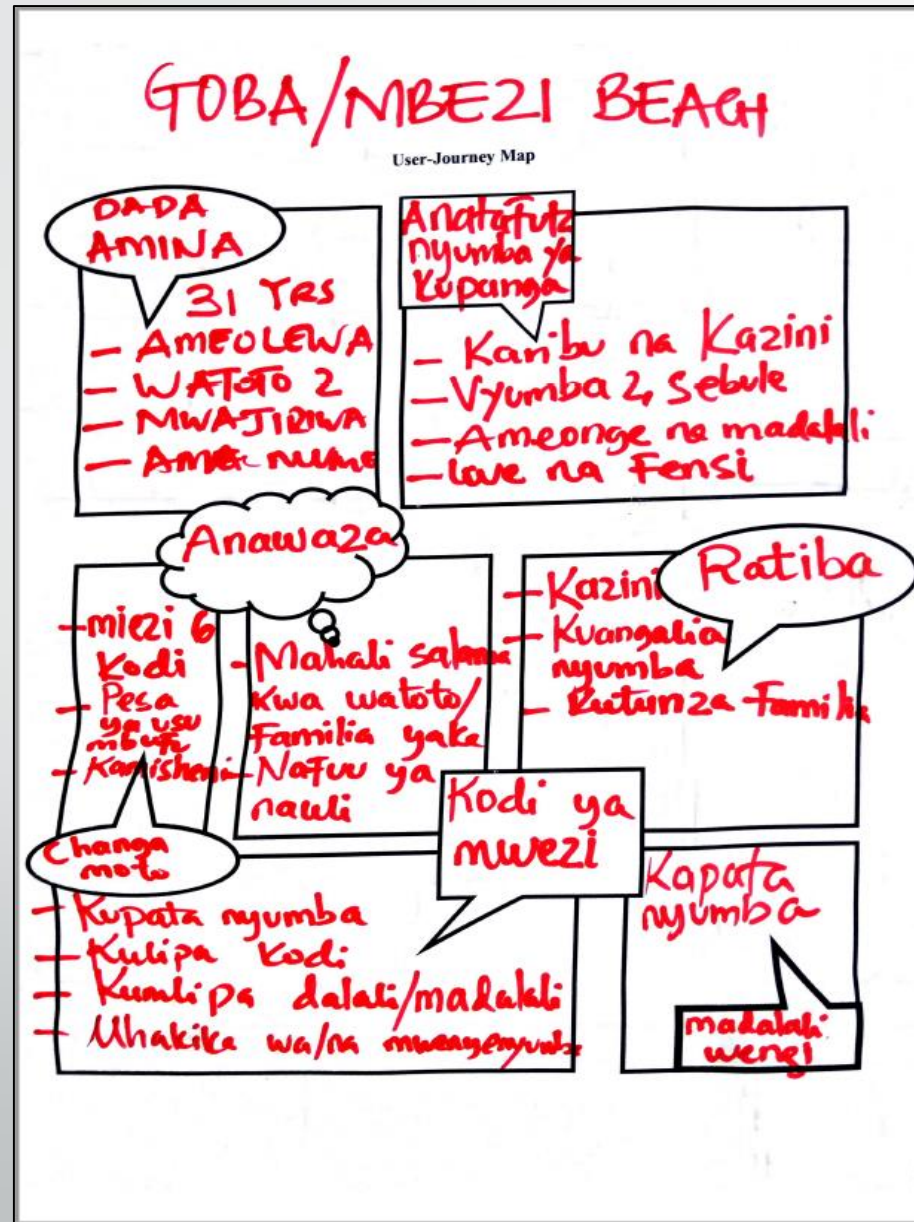 GOBA/MBEZI BEACH
User-Journey Map
DADA
AMINA
31 YRS
- AMEOLEWA
- WATOTO 2
- MWAJIRIWA
Anatafuta
nyumba ya
Kupanga
- Karibu na Kazini
- Vyumba 2, Sebule
- Ameonge na madalali
- na Fensi
Anawaza
- miezi 6
Kodi
- Pesa
ya usu
mbufu
- Kamisheni
- Mahali salama
kwa watoto/
Familia yake
- Nafuu ya
nauli
Ratiba
- Kazini
- Kuangalia
nyumba
- Kutunza Familia
Changa
moto
Kodi ya
mwezi
- Kupata nyumba
- Kulipa Kodi
- Kumlipa dalali/madalali
- Uhakika wa/na mwenyenyumba
Kapata
nyumba
madalali
wengi